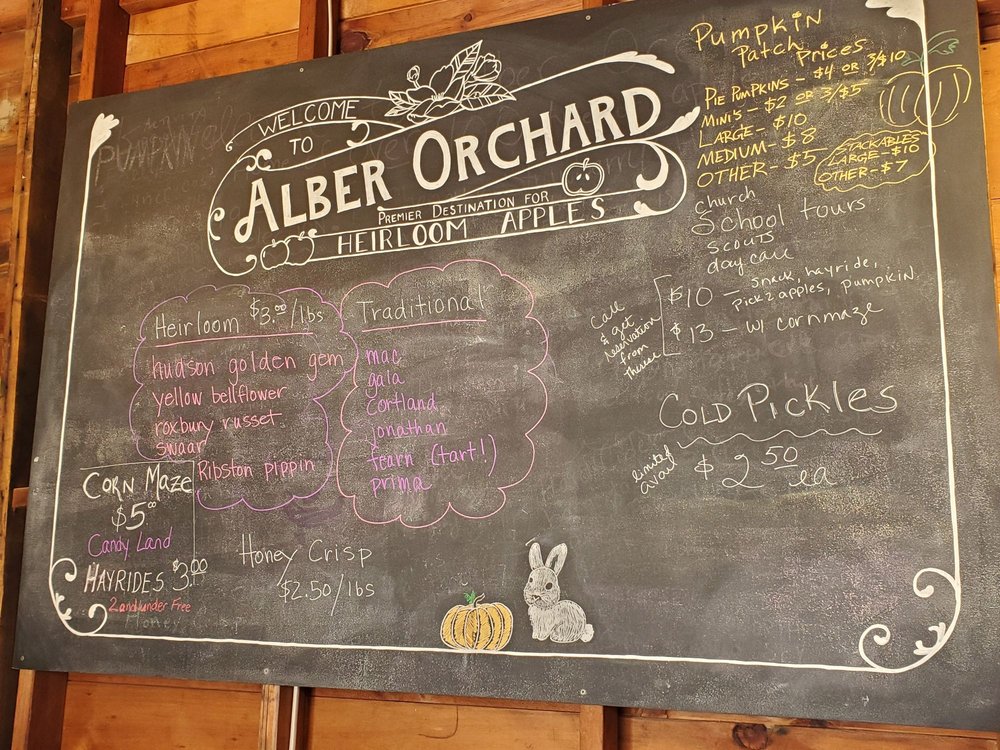 WELCOME
TO
ALBER ORCHARD
PREMIER DESTINATION FOR
HEIRLOOM APPLES
Pumpkin
Patch Prices
PIE PUMPKINS - $4 OR 3/$10
MINIS - $2 OR 3/$5
LARGE - $10
MEDIUM - $8
OTHER - $5
STACKABLES
LARGE - $10
OTHER - $7
church
School tours
scouts
day care
Call
& get
reservation
from
Therese
$10 - snack, hayride,
pick 2 apples, pumpkin
$13 - w/ cornmaze
COLD PICKLES
limited
avail
$2.50 ea
Heirloom $3.00/lbs
hudson golden gem
yellow bellflower
roxbury russet
swaar
Ribston pippin
Traditional
mac
gala
cortland
jonathan
fearn (tart!)
prima
CORN MAZE
$5.00
Candy Land
HAYRIDES $3.00
2 and under Free
Honey Crisp
Honey Crisp
$2.50/lbs
PUMPKIN